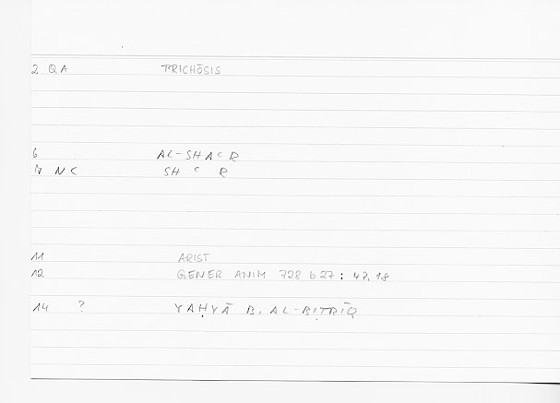 2 QA TRICHŌSIS
6 AL-SHAʿR
7 NC SH ʿ R
11 ARIST
12 GENER ANIM 728 b 27 : 47,18
14 ? YAḤYĀ B. AL-BIṬRĪQ